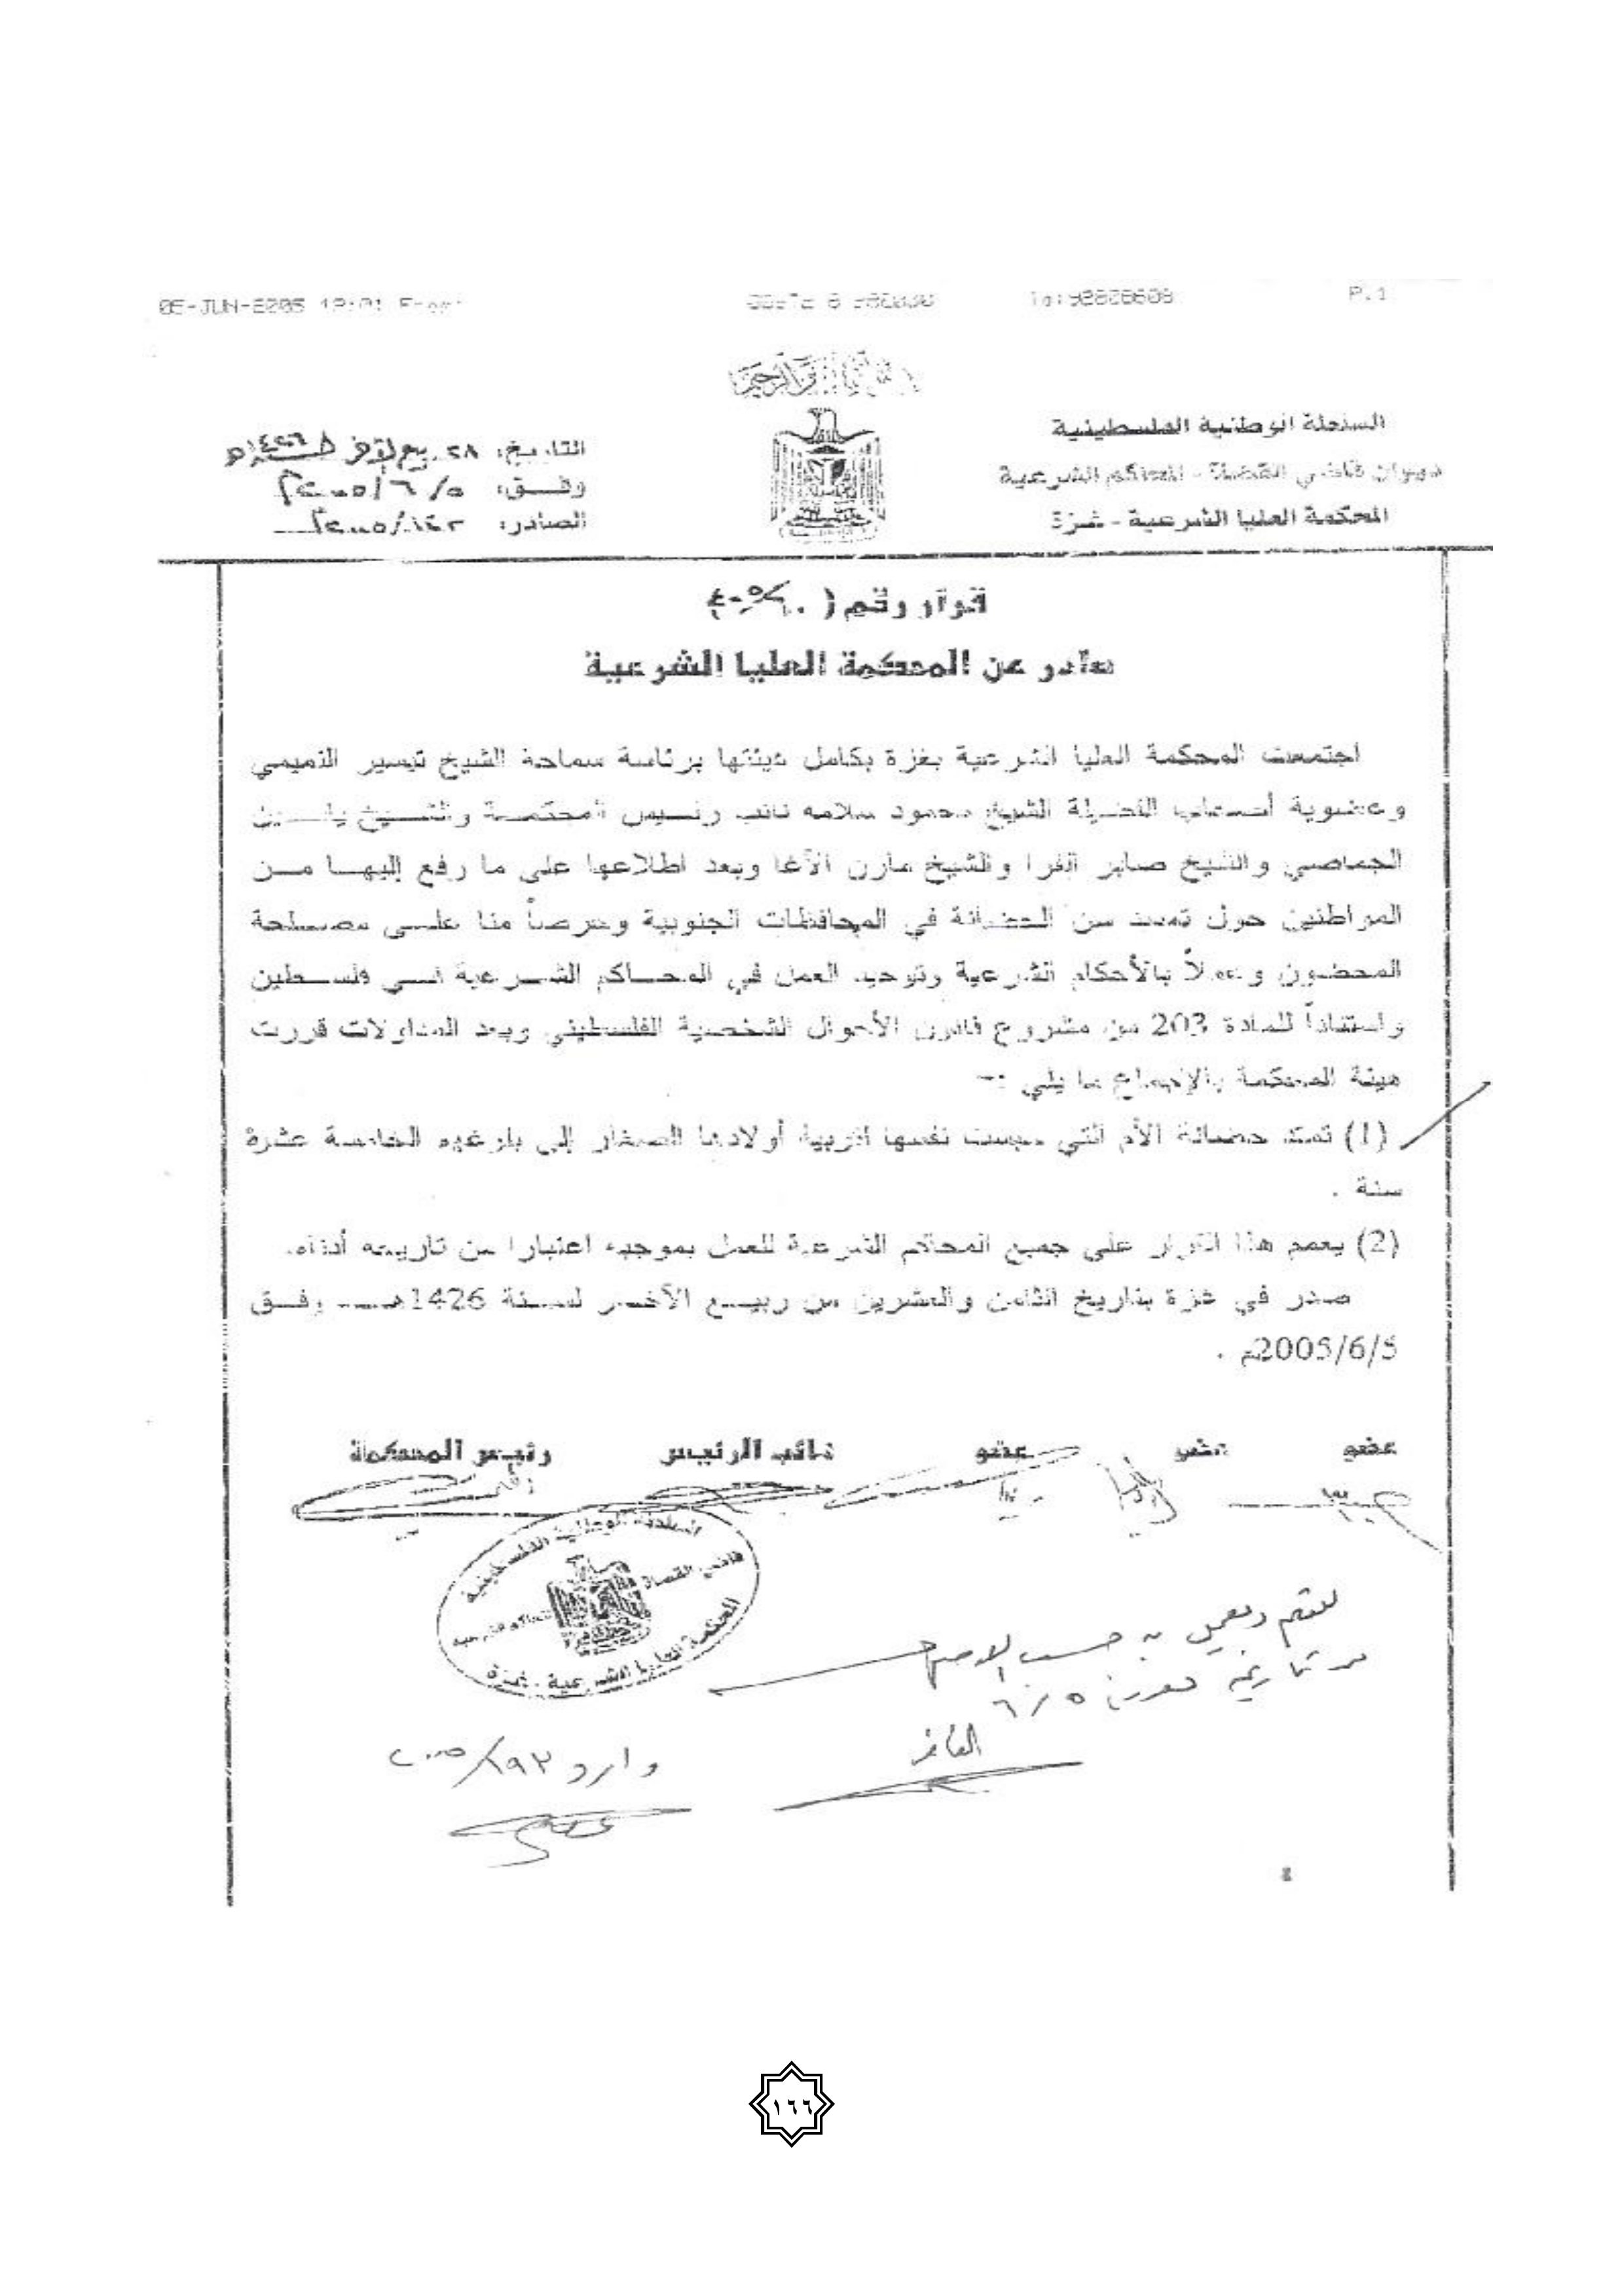 05-JUN-2005
P.1
السلطة الوطنية الفلسطينية
ديوان قاضي القضاة - المحاكم الشرعية
المحكمة العليا الشرعية - غزة
التاريخ: ٢٨ ربيع الآخر ١٤٢٦هـ
وفـق: ٥/ ٦ /٢٠٠٥م
الصادر:
قرار رقم (
صادر عن المحكمة العليا الشرعية
اجتمعت المحكمة العليا الشرعية بغزة بكامل هيئتها برئاسة سماحة الشيخ تيسير التميمي
وعضوية أصحاب الفضيلة الشيخ محمود سلامه نائب رئيس المحكمة والشيخ ياسين
الجماصي والشيخ صابر الفرا والشيخ مازن الآغا وبعد اطلاعها على ما رفع إليها من
المواطنين حول تمديد سن الحضانة في المحافظات الجنوبية وحرصاً منا على مصلحة
المحضون وعملاً بالأحكام الشرعية وتوحيد العمل في المحاكم الشرعية في فلسطين
واستناداً للمادة 203 من مشروع قانون الأحوال الشخصية الفلسطيني وبعد المداولات قررت
هيئة المحكمة بالإجماع ما يلي :-
(1) تمتد حضانة الأم التي حبست نفسها لتربية أولادها الصغار إلى بلوغهم الخامسة عشرة
سنة .
(2) يعمم هذا القرار على جميع المحاكم الشرعية للعمل بموجبه اعتبارا من تاريخه أدناه.
صدر في غزة بتاريخ الثامن والعشرين من ربيع الآخر لسنة 1426هـ وفق
2005/6/5م .
عضو عضو عضو نائب الرئيس رئيس المحكمة
السلطة الوطنية الفلسطينية
قاضي القضاة
المحاكم الشرعية
المحكمة العليا الشرعية - غزة
ويعمل به حسب الأصول
من تاريخه ٥ / ٦
وارد
١٦٦